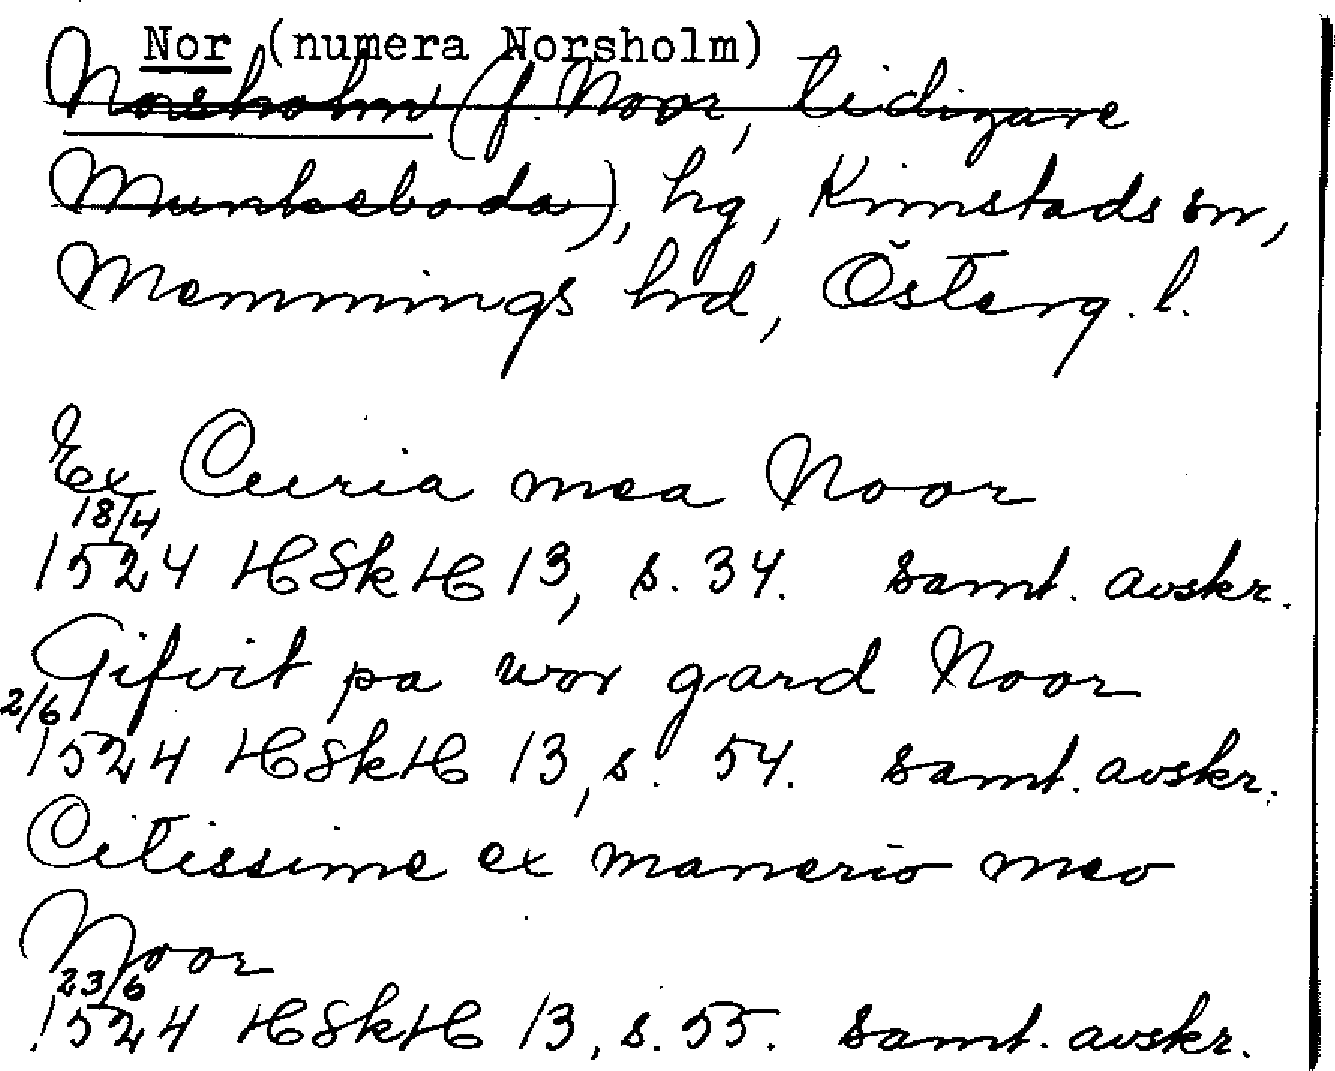 Nor (numera Norsholm)
Norsholm (f. Noor, tidigare
Munkeboda), hg, Kimstads sn,
Memmings hrd, Österg. l.
Ex Curia mea Noor
18/4
1524 HSkH 13, s. 34. samt. avskr.
Gifvit pa wor gard Noor
2/6
1524 HSkH 13, s. 54. samt. avskr.
Citissime ex manerio meo
Noor
23/6
1524 HSkH 13, s. 55. samt. avskr.